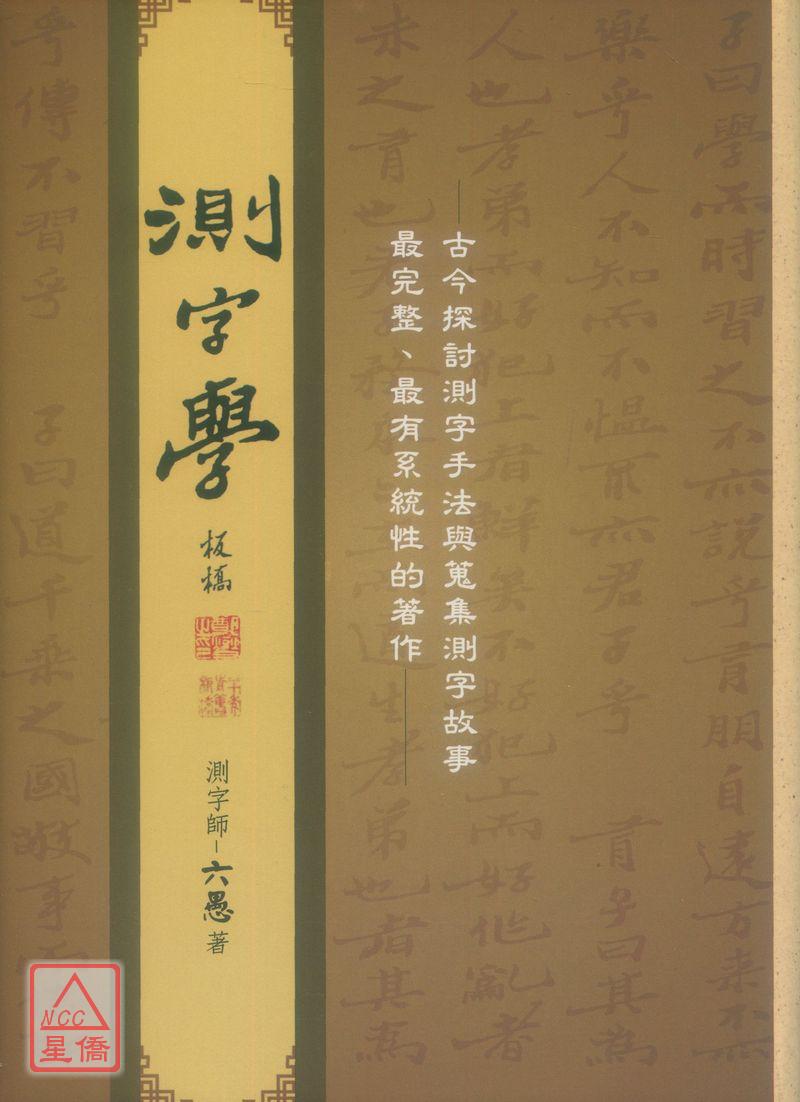 測字學
板橋
測字師-六愚著
古今探討測字手法與蒐集測字故事
最完整、最有系統性的著作
子曰學而時習之不亦說乎有朋自遠方來不
樂乎人不知而不慍不亦君子乎 有子曰其為
人也孝弟而好犯上者鮮矣不好犯上而好作亂者
未之有也君子務本本立而道生孝弟也者其為
乎傳不習乎 子曰道千乘之國敬事而
NCC
星僑